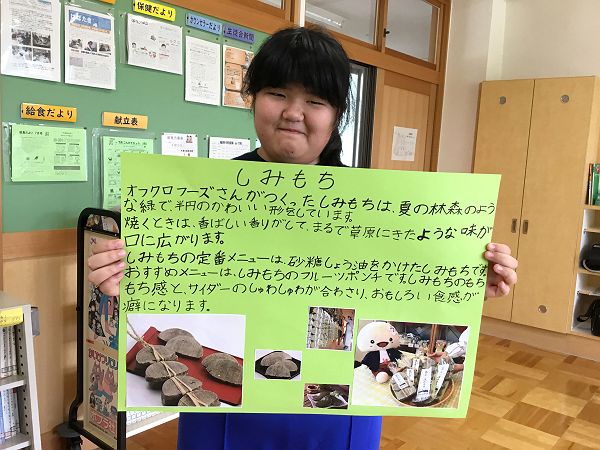 保健だより
カウンセラーだより
生徒会新聞
給食だより
献立表
しみもち
オフクロフーズさんがつくったしみもちは、夏の林森のよう
な緑で、半円のかわいい形をしています。
焼くときは、香ばしい香りがして、まるで草原にきたような味が
口に広がります。
しみもちの定番メニューは、砂糖しょう油をかけたしみもちです。
おすすめメニューは、しみもちのフルーツポンチです。しみもちのもち
もち感と、サイダーのしゅわしゅわが合わさり、おもしろい食感が
癖になります。